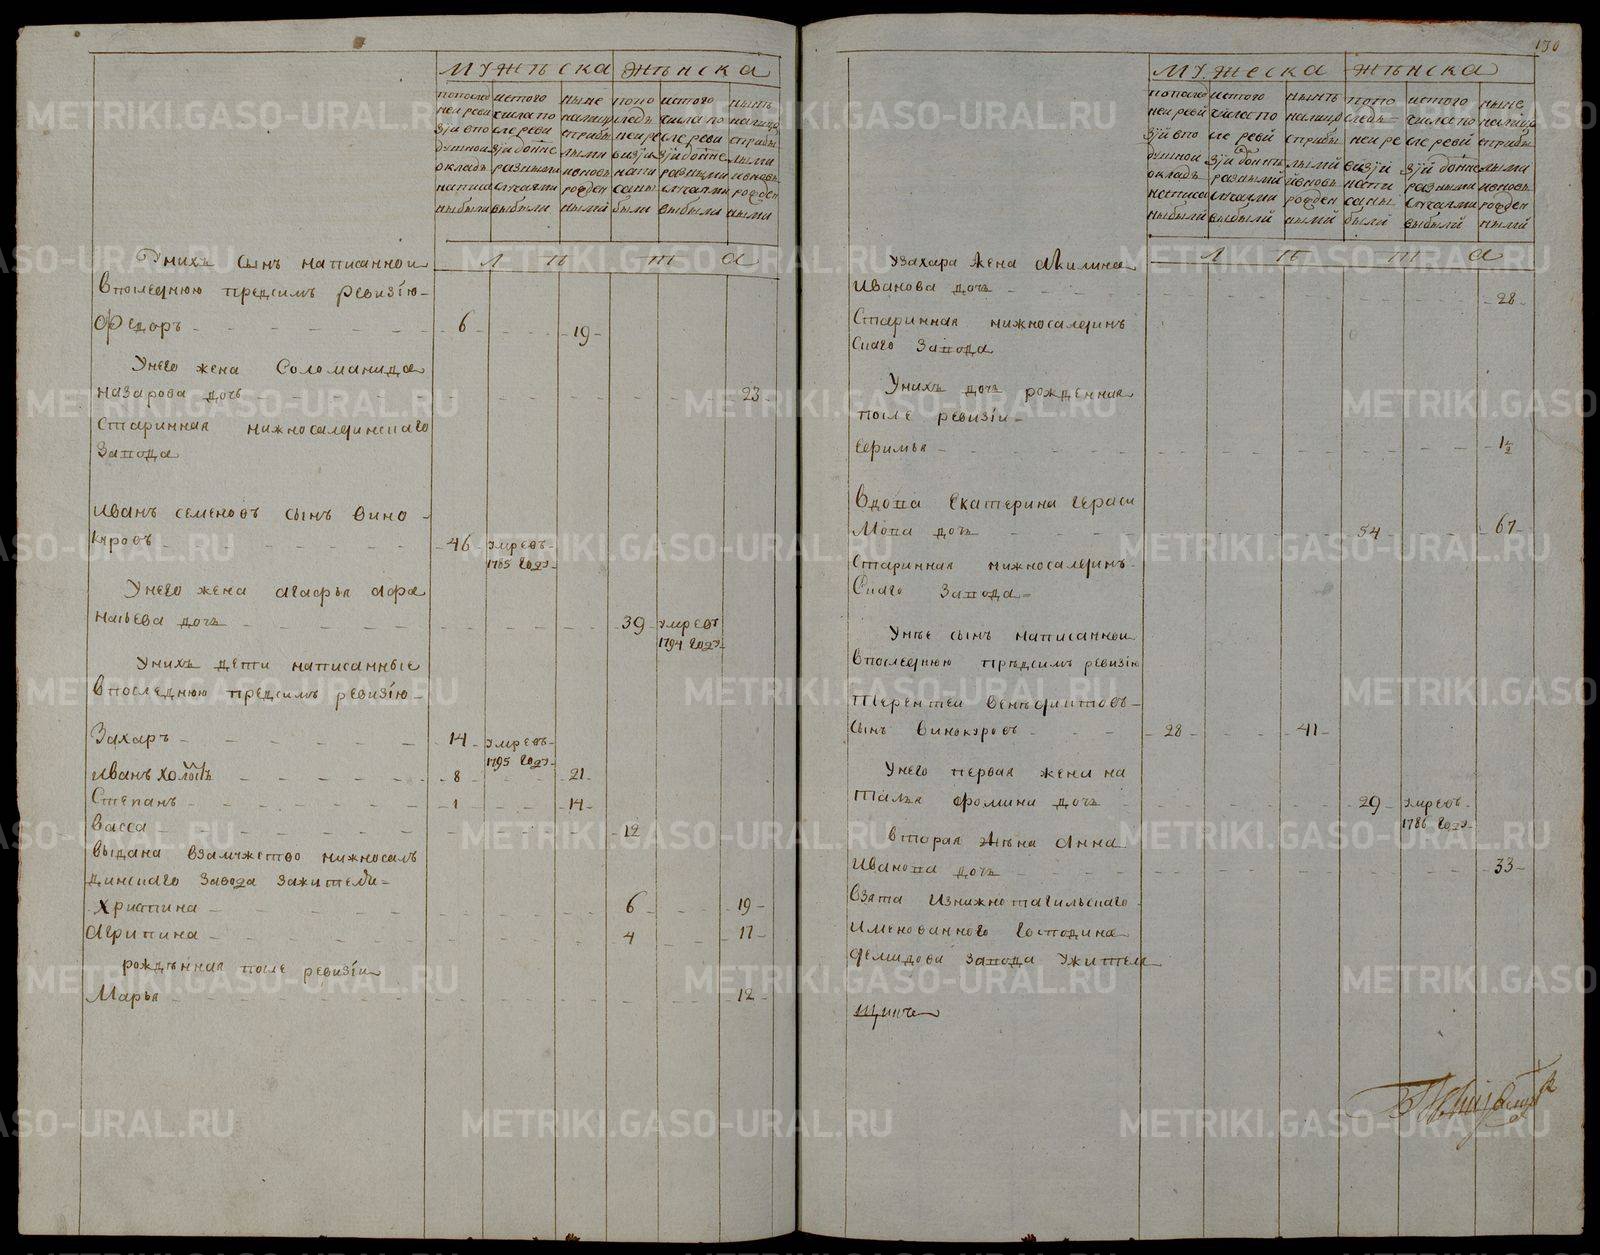 Мужеска Женска
попослѣд
ней реви
зіи впо
душной
окладъ
написа
ны были
истого
числа по
сле реви
зіи до нне
разными
случаями
выбыли
ныне
налицо
сприбы
лыми
ивновь
рожден
ными
попо
следъ
ней ре
визіи
напи
саны
были
истого
числа по
сле реви
зіи до нне
разными
случаями
выбыли
нынѣ
налицо
сприбы
лыми
ивновь
рожден
ными
Л ѣ т а
Унихъ сынъ написанной
впоследнюю предсимъ ревизїю
Федоръ 6 19
Унего жена Соломанида
назарова дочь 23
Старинная нижносалдинскаго
Завода
Иванъ семеновъ сынъ Вино
куровъ 46 умреѳъ
1785 году
Унего жена агафья афа
насьева дочь 39 умреѳъ
1794 году
Унихъ дети написанные
впоследнюю предсимъ ревизїю
Захаръ 14 умреѳъ
1795 году
Иванъ холостъ 8 21
Степанъ 1 14
Васса 12
выдана взамужство нижносаль
динскаго завода зажителя
Христина 6 19
Агрипина 4 17
рожденная после ревизїи
Марья 12
130
Мужеска Женска
попослед
ней реви
зіи впо
душной
окладъ
написа
ны были
истого
числа по
сле реви
зіи до нне
разными
случаями
выбыли
нынѣ
налицо
сприбы
лыми
ивновь
рожден
ными
попо
следъ
ней ре
визіи
напи
саны
были
истого
числа по
сле реви
зіи до нне
разными
случаями
выбыли
ныне
налицо
сприбы
лыми
ивновь
рожден
ными
Л ѣ т а
Узахара жена акилина
Иванова дочь 28
Старинная нижносалдинъ
скаго завода
Унихъ дочь рожденная
после ревизїи
Ефимья 1½
Вдова Екатерина гераси
мова дочь 54 67
Старинная нижносалдинъ
скаго завода
Унее сынъ написанной
впоследнюю предсимъ ревизїю
Терентей Венедиктовъ
сынъ Винокуровъ 28 41
Унего первая жена на
талья фомина дочь 29 умреѳъ
1786 году
вторая жена Анна
Иванова дочь 33
взята изнижнотагильскаго
именованного господина
демидова завода ужителя
METRIKI.GASO-URAL.RU